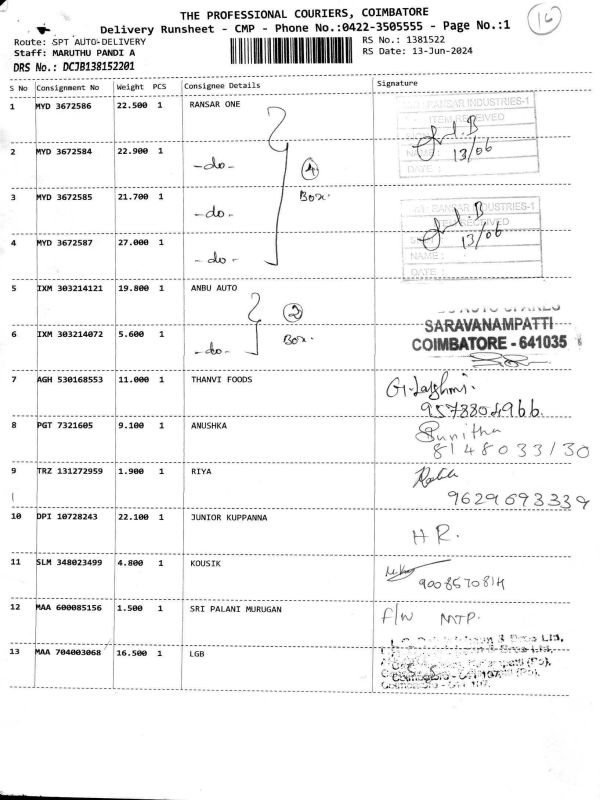 THE PROFESSIONAL COURIERS, COIMBATORE
16
Delivery Runsheet - CMP - Phone No.:0422-3505555 - Page No.:1
Route: SPT AUTO-DELIVERY
RS No.: 1381522
Staff: MARUTHU PANDI A
RS Date: 13-Jun-2024
DRS No.: DCJB138152201
S No Consignment No Weight PCS Consignee Details Signature
1 MYD 3672586 22.500 1 RANSAR ONE
RANSAR INDUSTRIES-1
ITEM RECEIVED
13/06
NAME:
DATE:
2 MYD 3672584 22.900 1 -do-
4
Box.
3 MYD 3672585 21.700 1 -do-
RANSAR INDUSTRIES-1
13/06
4 MYD 3672587 27.000 1 -do-
NAME:
DATE:
5 IXM 303214121 19.800 1 ANBU AUTO
2
Box.
SARAVANAMPATTI
6 IXM 303214072 5.600 1 -do-
COIMBATORE - 641035
7 AGH 530168553 11.000 1 THANVI FOODS
9578804966
8 PGT 7321605 9.100 1 ANUSHKA
Sunitha
8148033130
9 TRZ 131272959 1.900 1 RIYA
9629693339
10 DPI 10728243 22.100 1 JUNIOR KUPPANNA
HR.
11 SLM 348023499 4.800 1 KOUSIK
9008570814
12 MAA 600085156 1.500 1 SRI PALANI MURUGAN
F/W MTP.
13 MAA 704003068 16.500 1 LGB